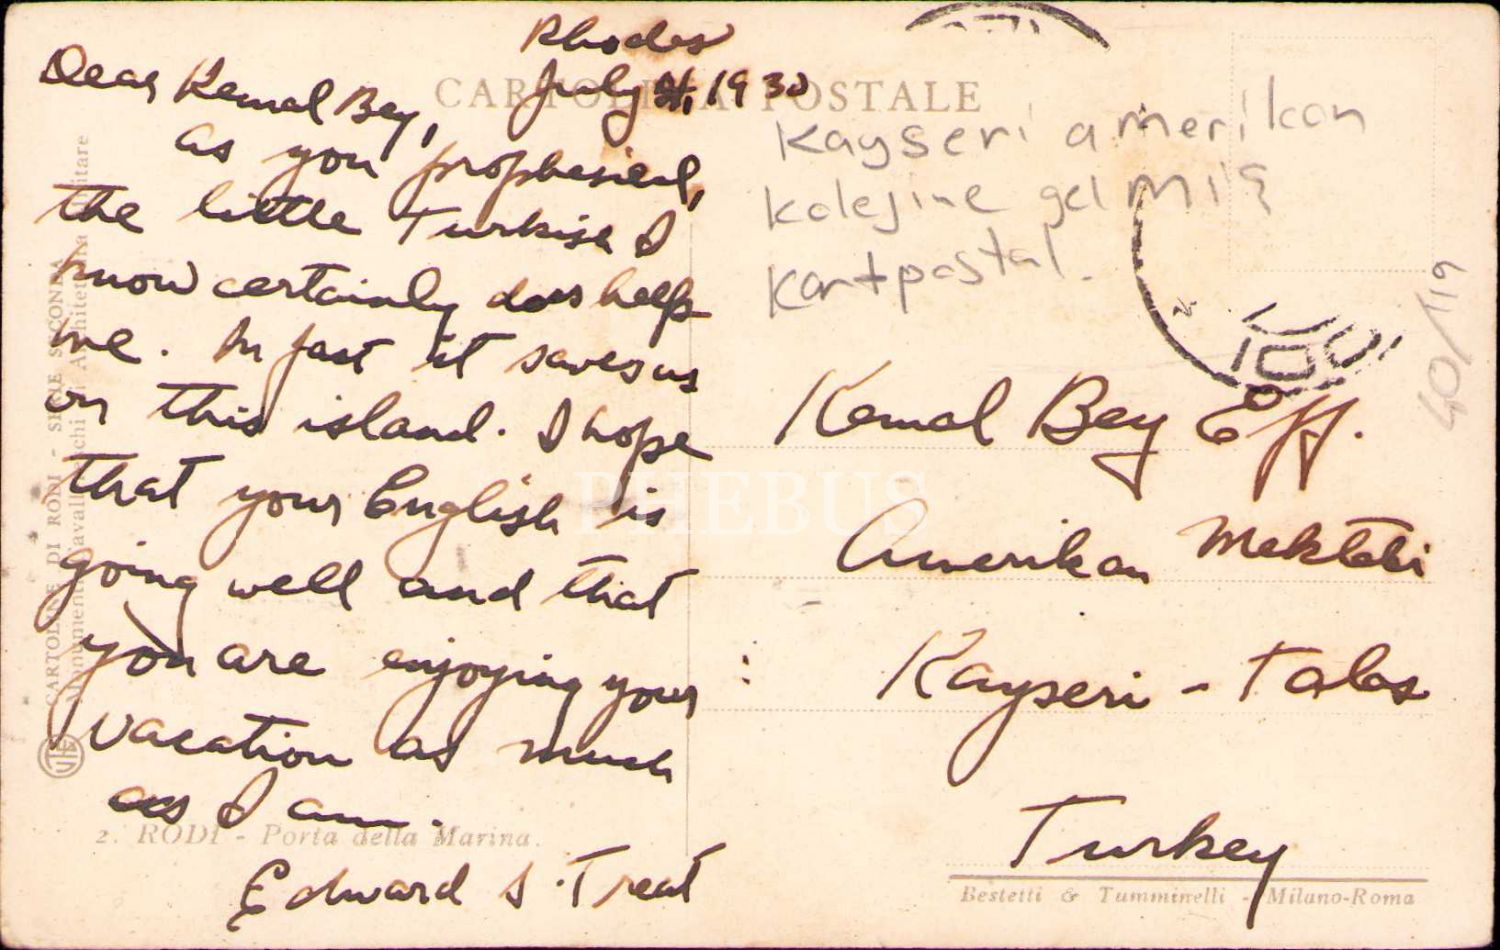 Rhodes
July 31, 1930
CARTOLINA POSTALE
Dear Kemal Bey,
as you prophesied,
the little Turkish I
know certainly does help
me. In fact it saves us
on this island. I hope
that your English is
going well and that
you are enjoying your
vacation as much
as I am.
Edward S. Treat
Kayseri amerikan
kolejine gelmiş
kartpostal.
40/119
Kemal Bey Eff.
Amerikan Mektebi
Kayseri - Talas
Turkey
PHEBUS
CARTOLINE DI RODI - SERIE SECONDA
Monumenti Cavallereschi di Architettura Militare
2. RODI - Porta della Marina.
Bestetti & Tumminelli - Milano-Roma